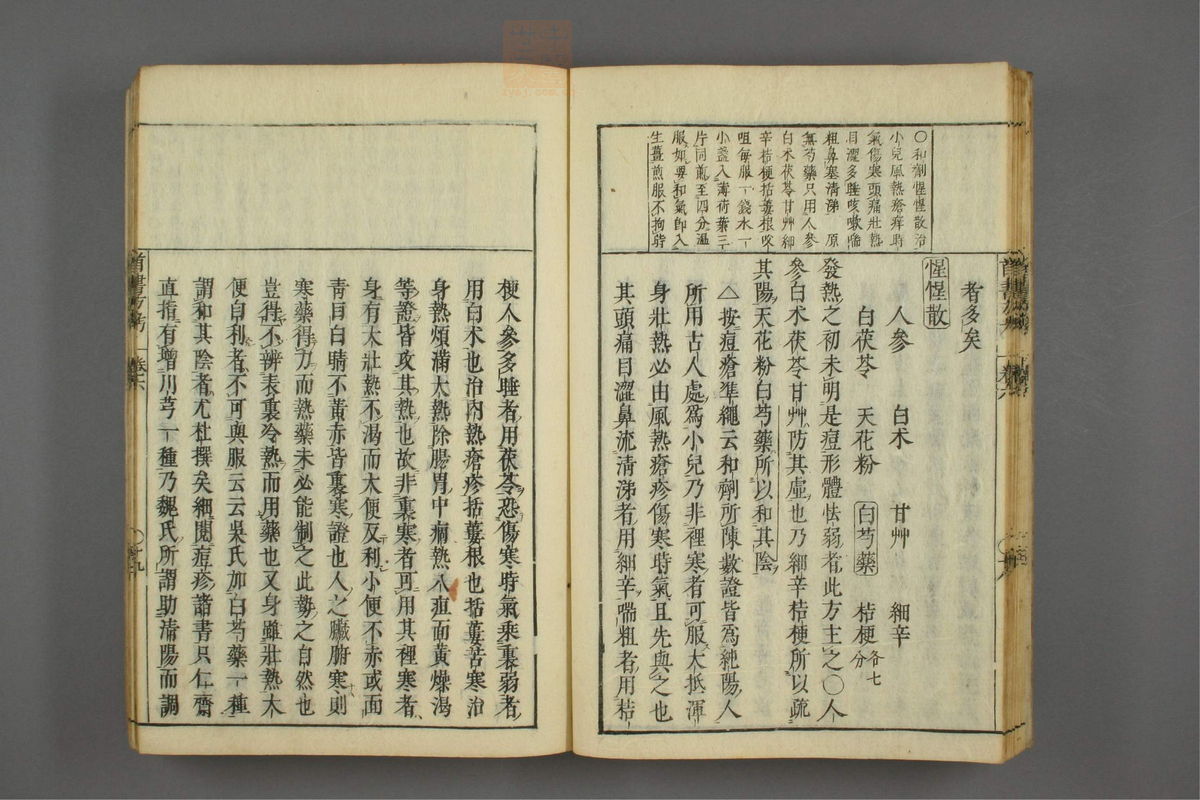 ○和劑惺惺散治
小兒風熱瘡疹時
氣傷寒頭痛壯熱
目澀多睡咳嗽喘
粗鼻塞清涕 原
無芍藥只用人參
白朮茯苓甘艸細
辛桔梗括蔞根㕮
咀每服一錢水一
小盞入薄荷葉三
片同煎至四分溫
服如要和氣卽入
生薑煎服不拘時
者多矣
惺惺散
人參 白朮 甘艸 細辛
白茯苓 天花粉 白芍藥 桔梗各七分
發熱之初未明是痘形體怯弱者此方主之○人
參白朮茯苓甘艸防其虛也乃細辛桔梗所以疏
其陽天花粉白芍藥所以和其陰
△按痘瘡準繩云和劑所陳數證皆爲純陽人
所用古人處爲小兒乃非裡寒者可服大抵渾
身壯熱必由風熱瘡疹傷寒時氣且先與之也
其頭痛目澀鼻流清涕者用細辛喘粗者用桔
梗人參多睡者用茯苓恐傷寒時氣乘裏弱者
用白朮也治內熱瘡疹括蔞根也括蔞苦寒治
身熱煩滿大熱除腸胃中痼熱八疸面黃燥渴
等證皆攻其熱也故非裏寒者可用其裡寒者
身有大壯熱不渴而大便反利小便不赤或面
靑目白睛不黃赤皆裏寒證也人之臟腑寒則
寒藥得力而熱藥未必能制之此勢之自然也
豈得不辨表裏冷熱而用藥也又身雖壯熱大
便自利者不可與服云云吳氏加白芍藥一種
謂和其陰者尤杜撰矣細閱痘疹諸書只仁齋
直指有增川芎一種乃魏氏所謂助淸陽而調
首書方考 卷六